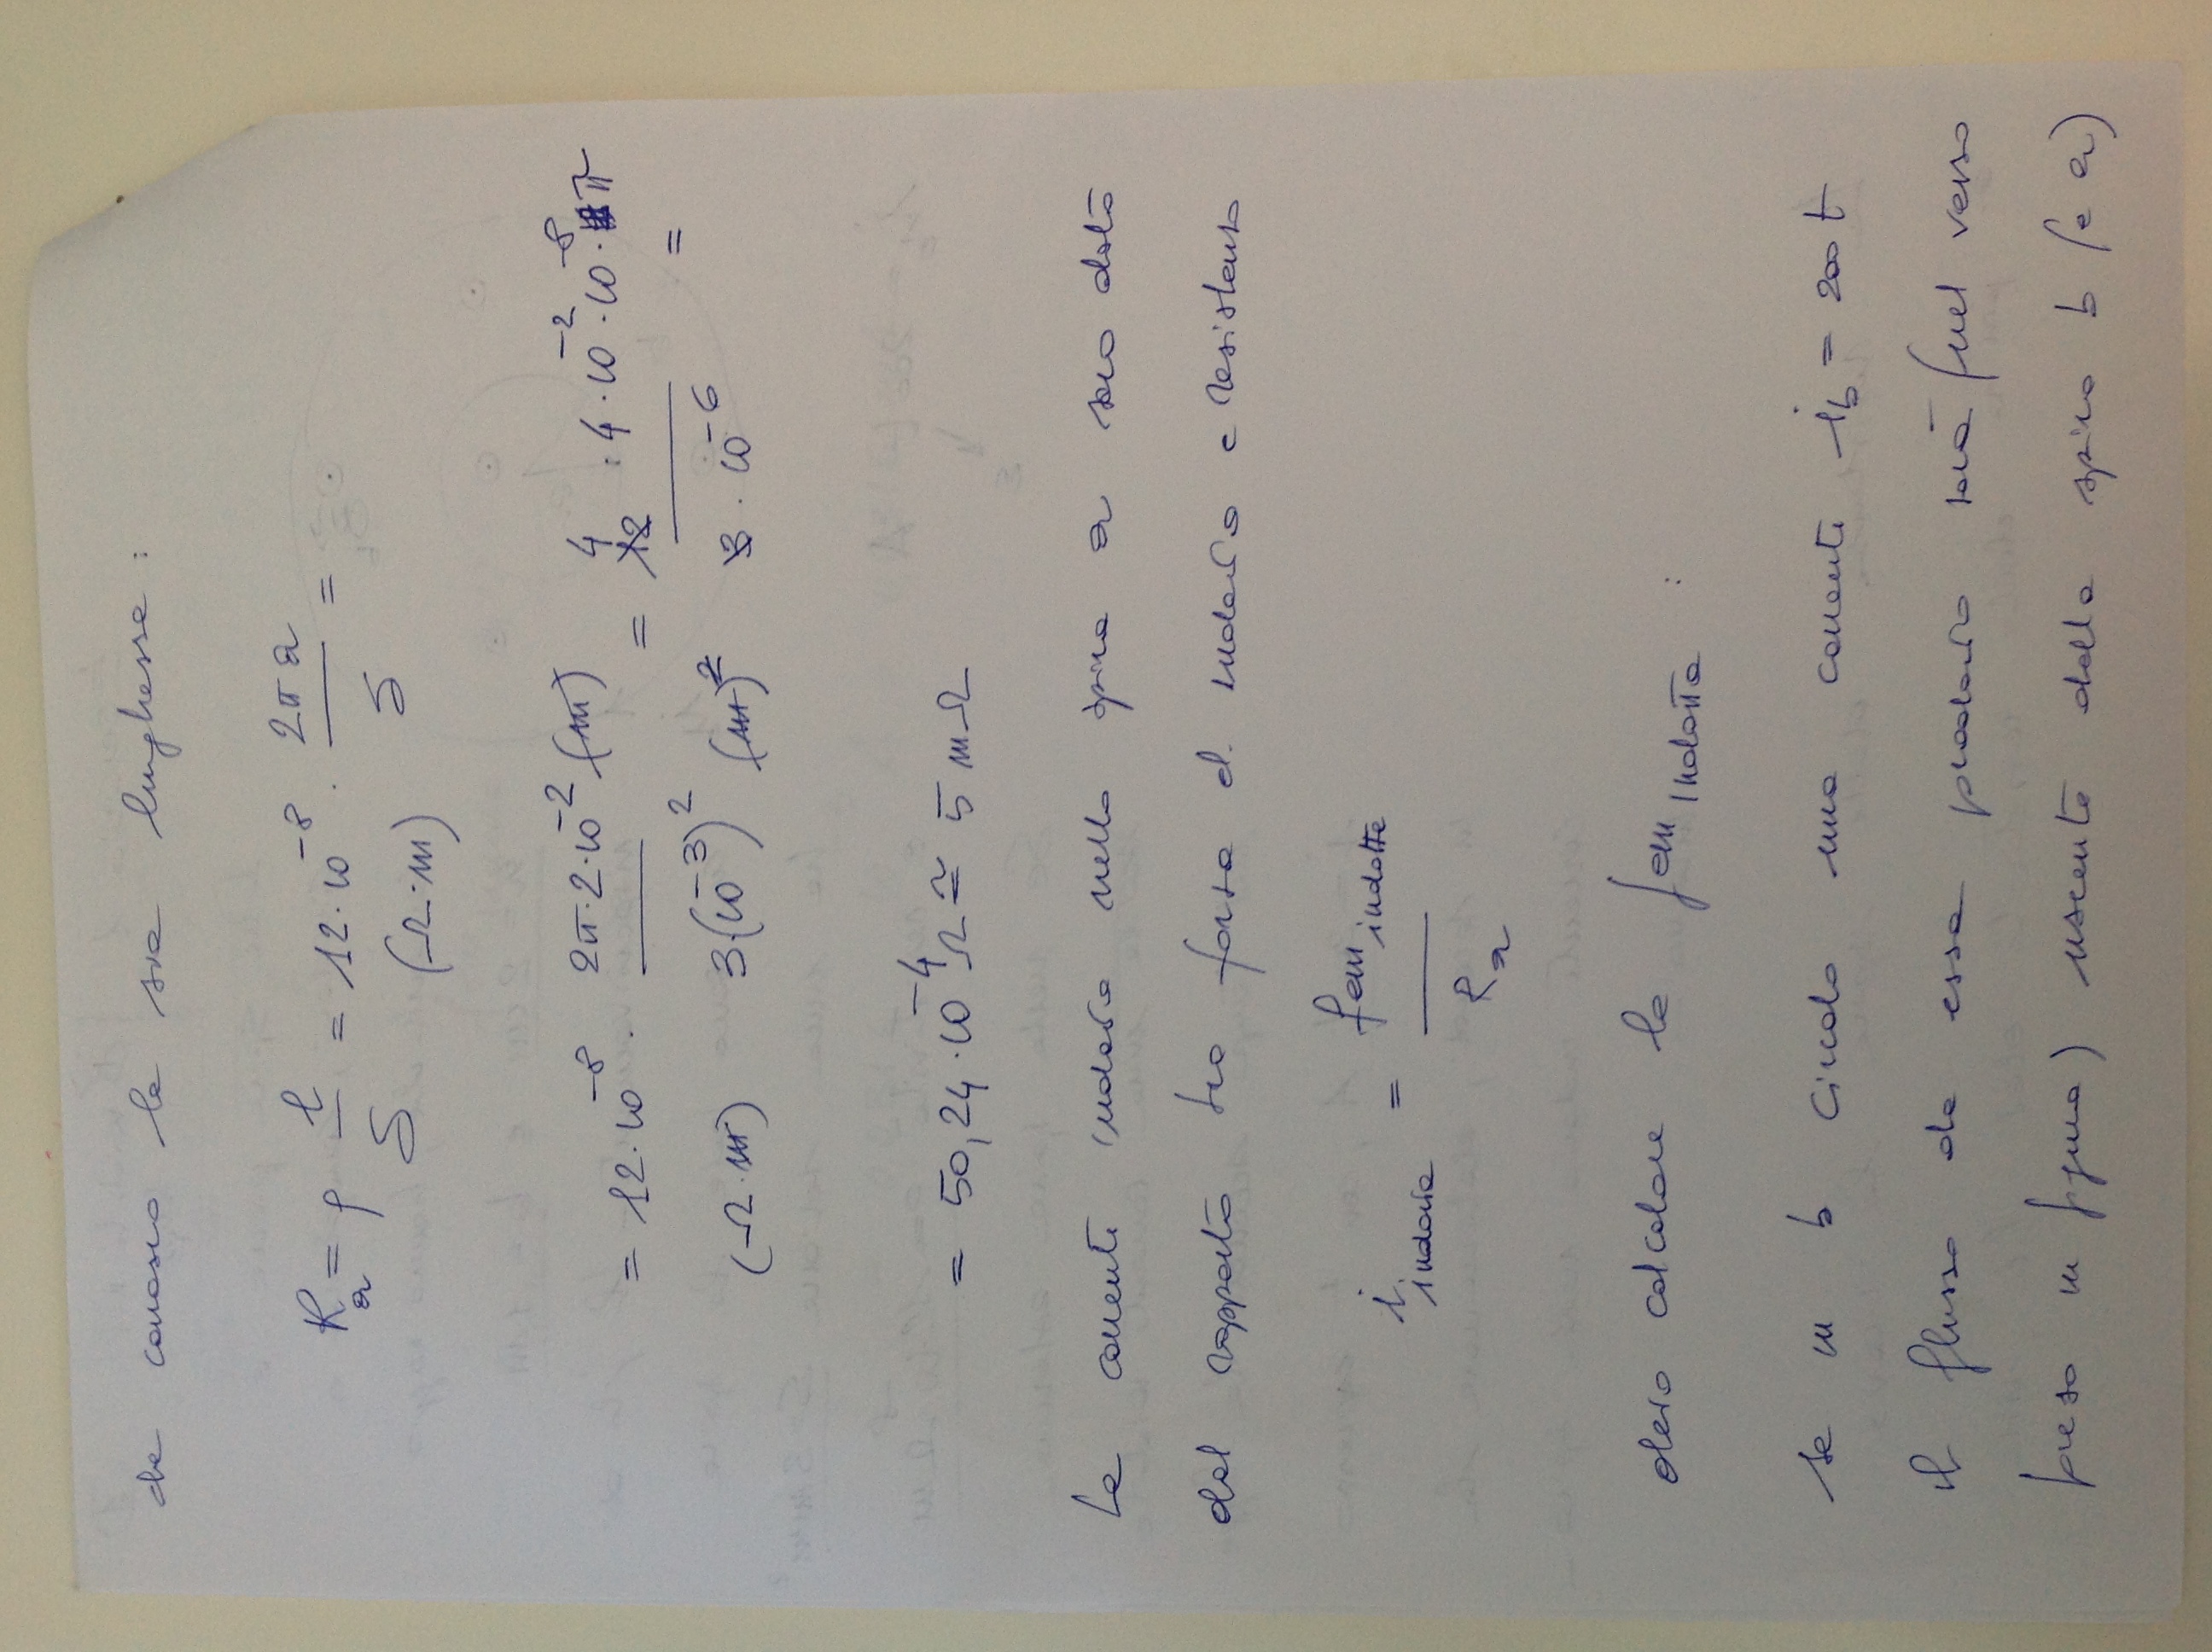 da conosco la sua lunghezza :
R_a = ρ l/S = 12·10^-8 (Ω·m) · 2πa/S =
= 12·10^-8 (Ω·m) · 2π·2·10^-2 (m) / 3·(10^-3)^2 (m)^2 = 4 12 · 4·10^-2·10^-8·π / 3·10^-6 =
= 50,24·10^-4 Ω ≅ 5 mΩ
La corrente indotta nella spira a sarà data
dal rapporto tra forza el. indotta e resistenza
i indotta = fem indotta / R_a
devo calcolare la fem indotta :
se in b circola una corrente i_b = 200 t
il flusso da essa prodotto sarà (nel verso
preso in figura) uscente dalla spira b (e a)